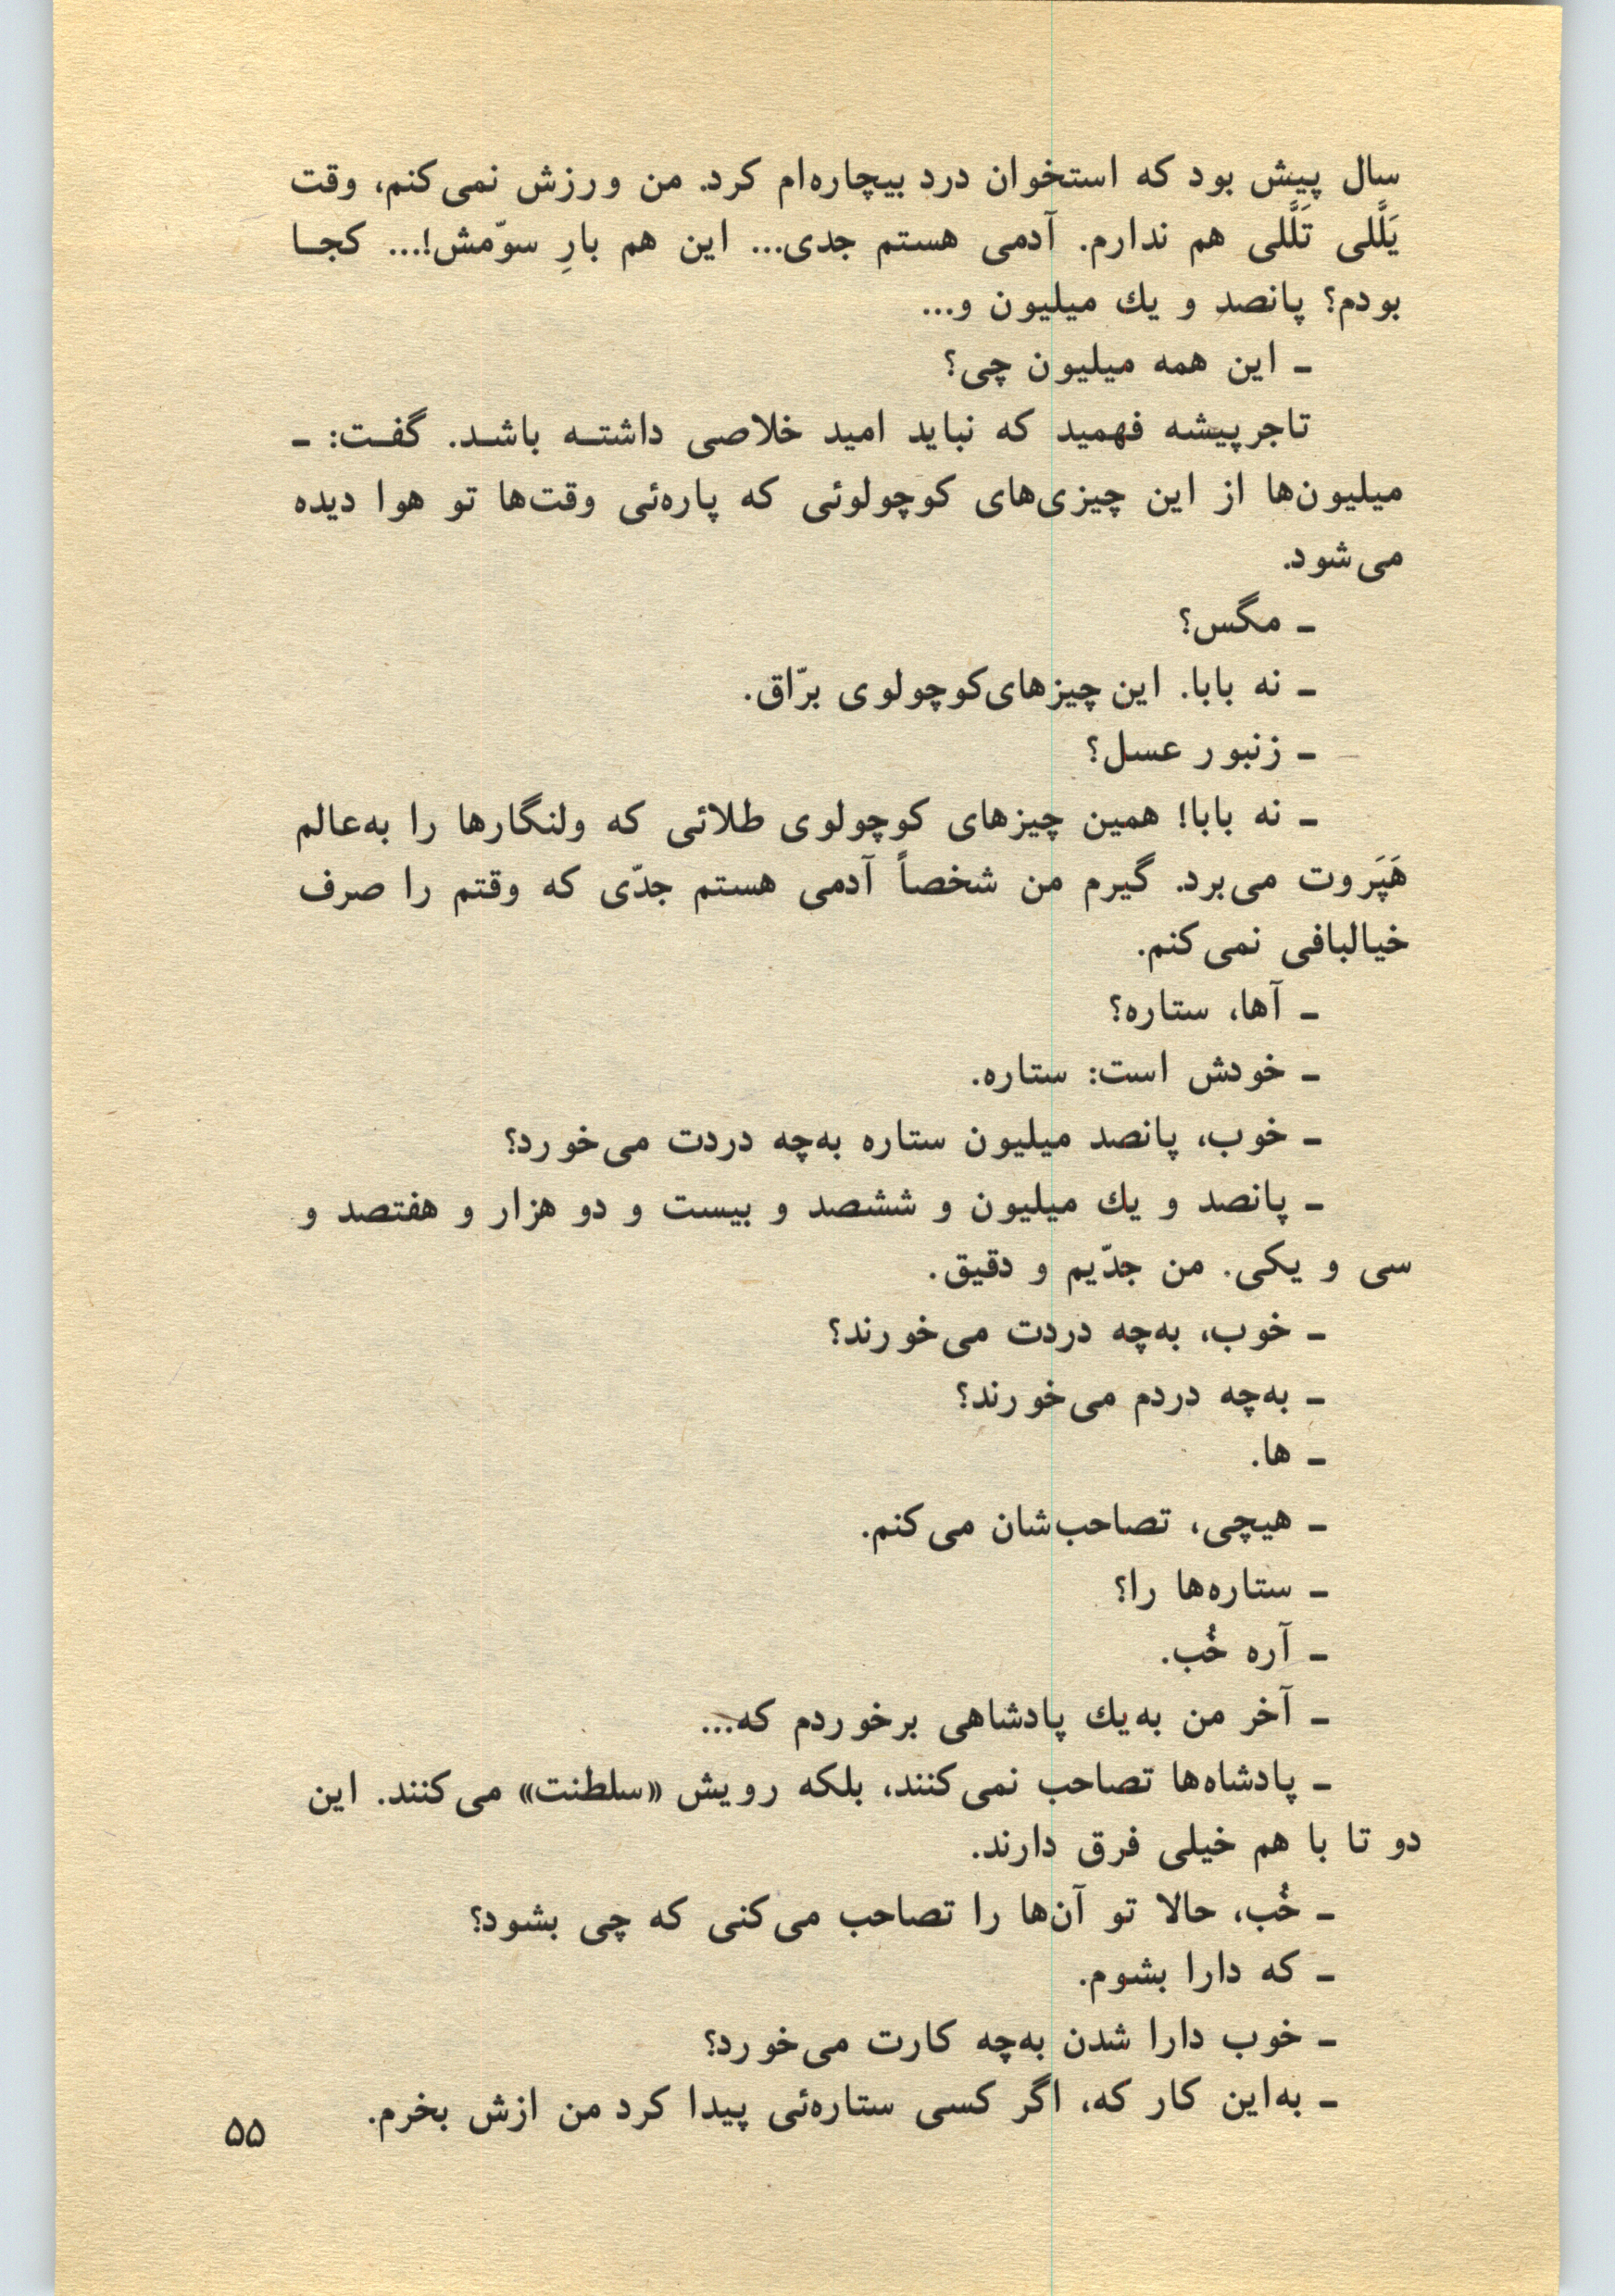 سال پیش بود که استخوان درد بیچاره‌ام کرد. من ورزش نمی‌کنم، وقت
یَلَّلی تَلَّلی هم ندارم. آدمی هستم جدی... این هم بارِ سوّمش!... کجــا
بودم؟ پانصد و یك میلیون و...
ـ این همه میلیون چی؟
تاجرپیشه فهمید که نباید امید خلاصی داشتــه باشــد. گفــت: ـ
میلیون‌ها از این چیزی‌های کوچولوئی که پاره‌ئی وقت‌ها تو هوا دیده
می‌شود.
ـ مگس؟
ـ نه بابا. این چیزهای‌کوچولوی برّاق.
ـ زنبور عسل؟
ـ نه بابا! همین چیزهای کوچولوی طلائی که ولنگارها را به‌عالم
هَپَروت می‌برد. گیرم من شخصاً آدمی هستم جدّی که وقتم را صرف
خیالبافی نمی‌کنم.
ـ آها، ستاره؟
ـ خودش است: ستاره.
ـ خوب، پانصد میلیون ستاره به‌چه دردت می‌خورد؟
ـ پانصد و یك میلیون و ششصد و بیست و دو هزار و هفتصد و
سی و یکی. من جدّیم و دقیق.
ـ خوب، به‌چه دردت می‌خورند؟
ـ به‌چه دردم می‌خورند؟
ـ ها.
ـ هیچی، تصاحب‌شان می‌کنم.
ـ ستاره‌ها را؟
ـ آره خُب.
ـ آخر من به‌یك پادشاهی برخوردم که...
ـ پادشاه‌ها تصاحب نمی‌کنند، بلکه رویش «سلطنت» می‌کنند. این
دو تا با هم خیلی فرق دارند.
ـ خُب، حالا تو آن‌ها را تصاحب می‌کنی که چی بشود؟
ـ که دارا بشوم.
ـ خوب دارا شدن به‌چه کارت می‌خورد؟
ـ به‌این کار که، اگر کسی ستاره‌ئی پیدا کرد من ازش بخرم.
۵۵